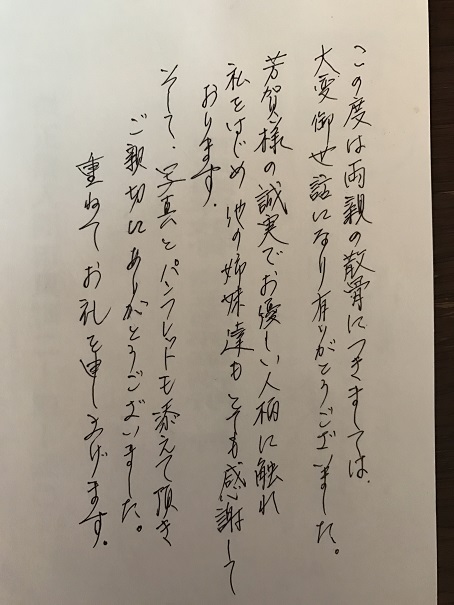 この度は両親の散骨につきましては、
大変御世話になり有りがとうございました。
芳賀様の誠実でお優しい人柄に触れ
私をはじめ他の姉妹達もとても感謝して
おります。
そして、写真とパンフレットも添えて頂き
ご親切にありがとうございました。
重ねてお礼を申し上げます。